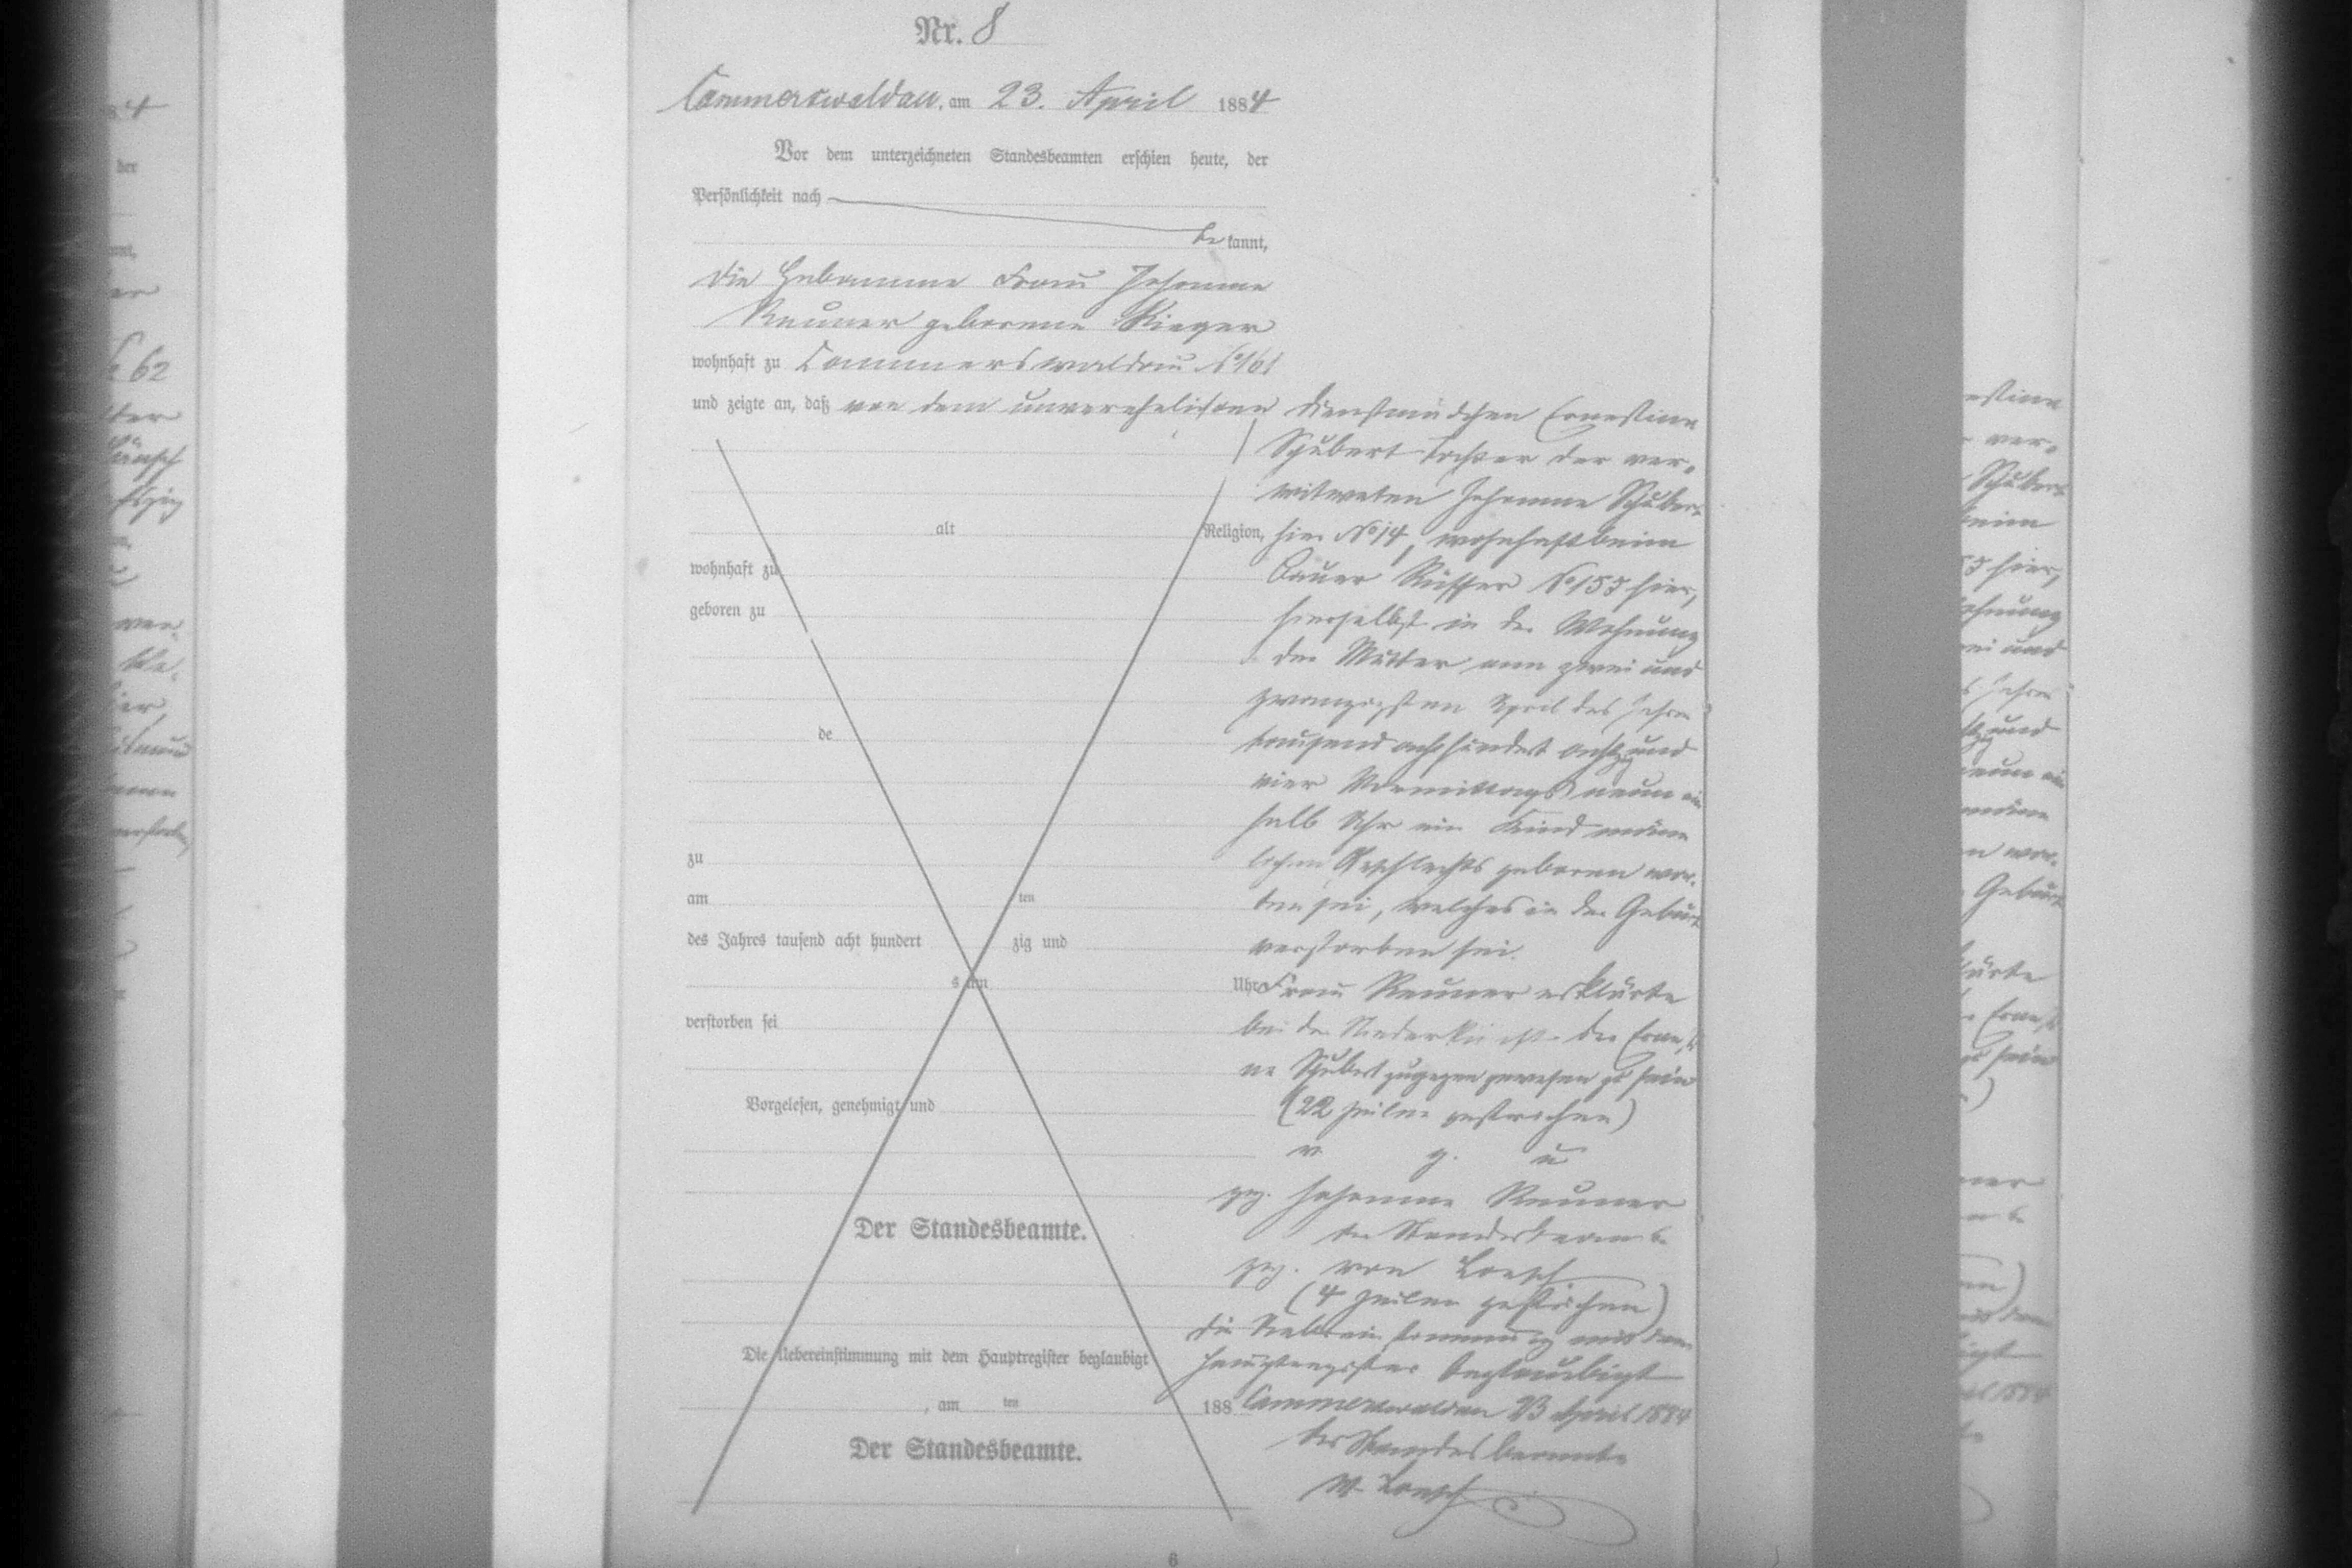 Nr. 8
Cammerswaldau, am 23. April 1884
Vor dem unterzeichneten Standesbeamten erschien heute, der
Persönlichkeit nach
be kannt,
die Hebamme Frau Johanne
Reuner geborene Rieger
wohnhaft zu Cammerswaldau No 161
und zeigte an, daß von dem unverehelichten Dienstmädchen Ernestine
Schubert Tochter der ver-
witweten Johanne Schubert
alt
Religion, hier No 14, wohnhaft beim
wohnhaft zu
Bauer Rüffer No 157 hier,
geboren zu
hierselbst in der Wohnung
der Mutter am zwei und
zwanzigsten April des Jahres
de
tausend acht hundert achtzig und
vier Vormittags neun ein
halb Uhr ein Kind männ
zu
lichen Geschlechts geboren wor-
am
ten
den sei, welches in der Geburt
des Jahres tausend acht hundert
zig und
verstorben sei.
s um
Uhr Frau Reuner erklärte
verstorben sei
bei der Niederkunft der Ernesti
ne Schubert zugegen gewesen zu sein
Vorgelesen, genehmigt und
(22 Zeilen gestrichen)
v. g. u.
gez. Johanne Reuner
Der Standesbeamte.
der Standesbeamte
gez. von Loesch
(4 Zeilen gestrichen)
die Uebereinstimmung mit dem
Die Uebereinstimmung mit dem Hauptregister beglaubigt
Hauptregister beglaubigt
, am
ten
188
Cammerswaldau 23 April 1884
Der Standesbeamte.
der Standesbeamte
v. Loesch
6